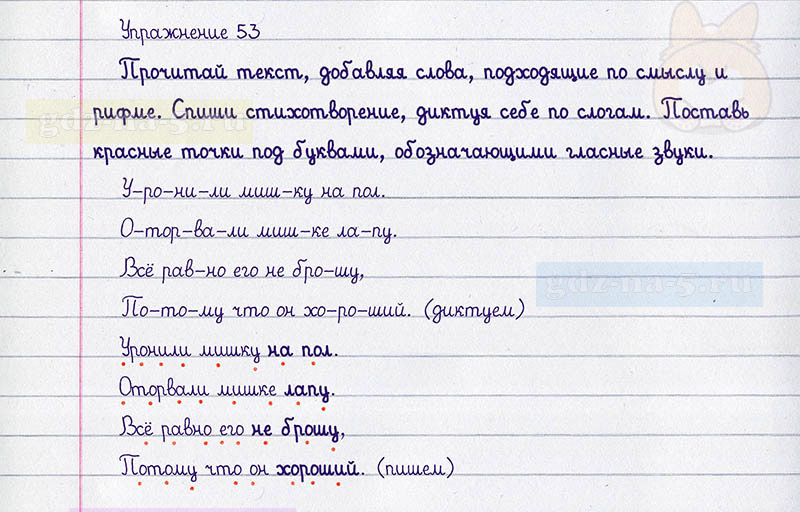 Упражнение 53
Прочитай текст, добавляя слова, подходящие по смыслу и
рифме. Спиши стихотворение, диктуя себе по слогам. Поставь
gdz-na-5.ru
красные точки под буквами, обозначающими гласные звуки.
У-ро-ни-ли миш-ку на пол.
О-тор-ва-ли миш-ке ла-пу.
Всё рав-но его не бро-шу,
gdz-na-5.ru
По-то-му что он хо-ро-ший. (диктуем)
Уронили мишку на пол.
Оторвали мишке лапу.
Всё равно его не брошу,
Потому что он хороший. (пишем)